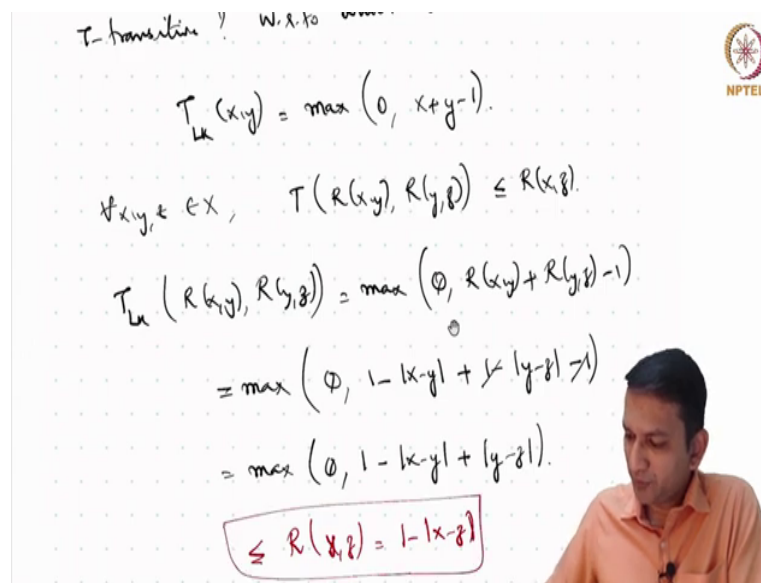 T-transitive? W.r.to
NPTEL
T_LK (x,y) = max (0, x+y-1).
∀x,y,z ∈ X, T(R(x,y), R(y,z)) ≤ R(x,z).
T_LK (R(x,y), R(y,z)) = max (0, R(x,y) + R(y,z) - 1)
= max (0, 1 - |x-y| + 1 - |y-z| - 1)
= max (0, 1 - |x-y| + |y-z|).
≤ R(x,z) = 1 - |x-z|